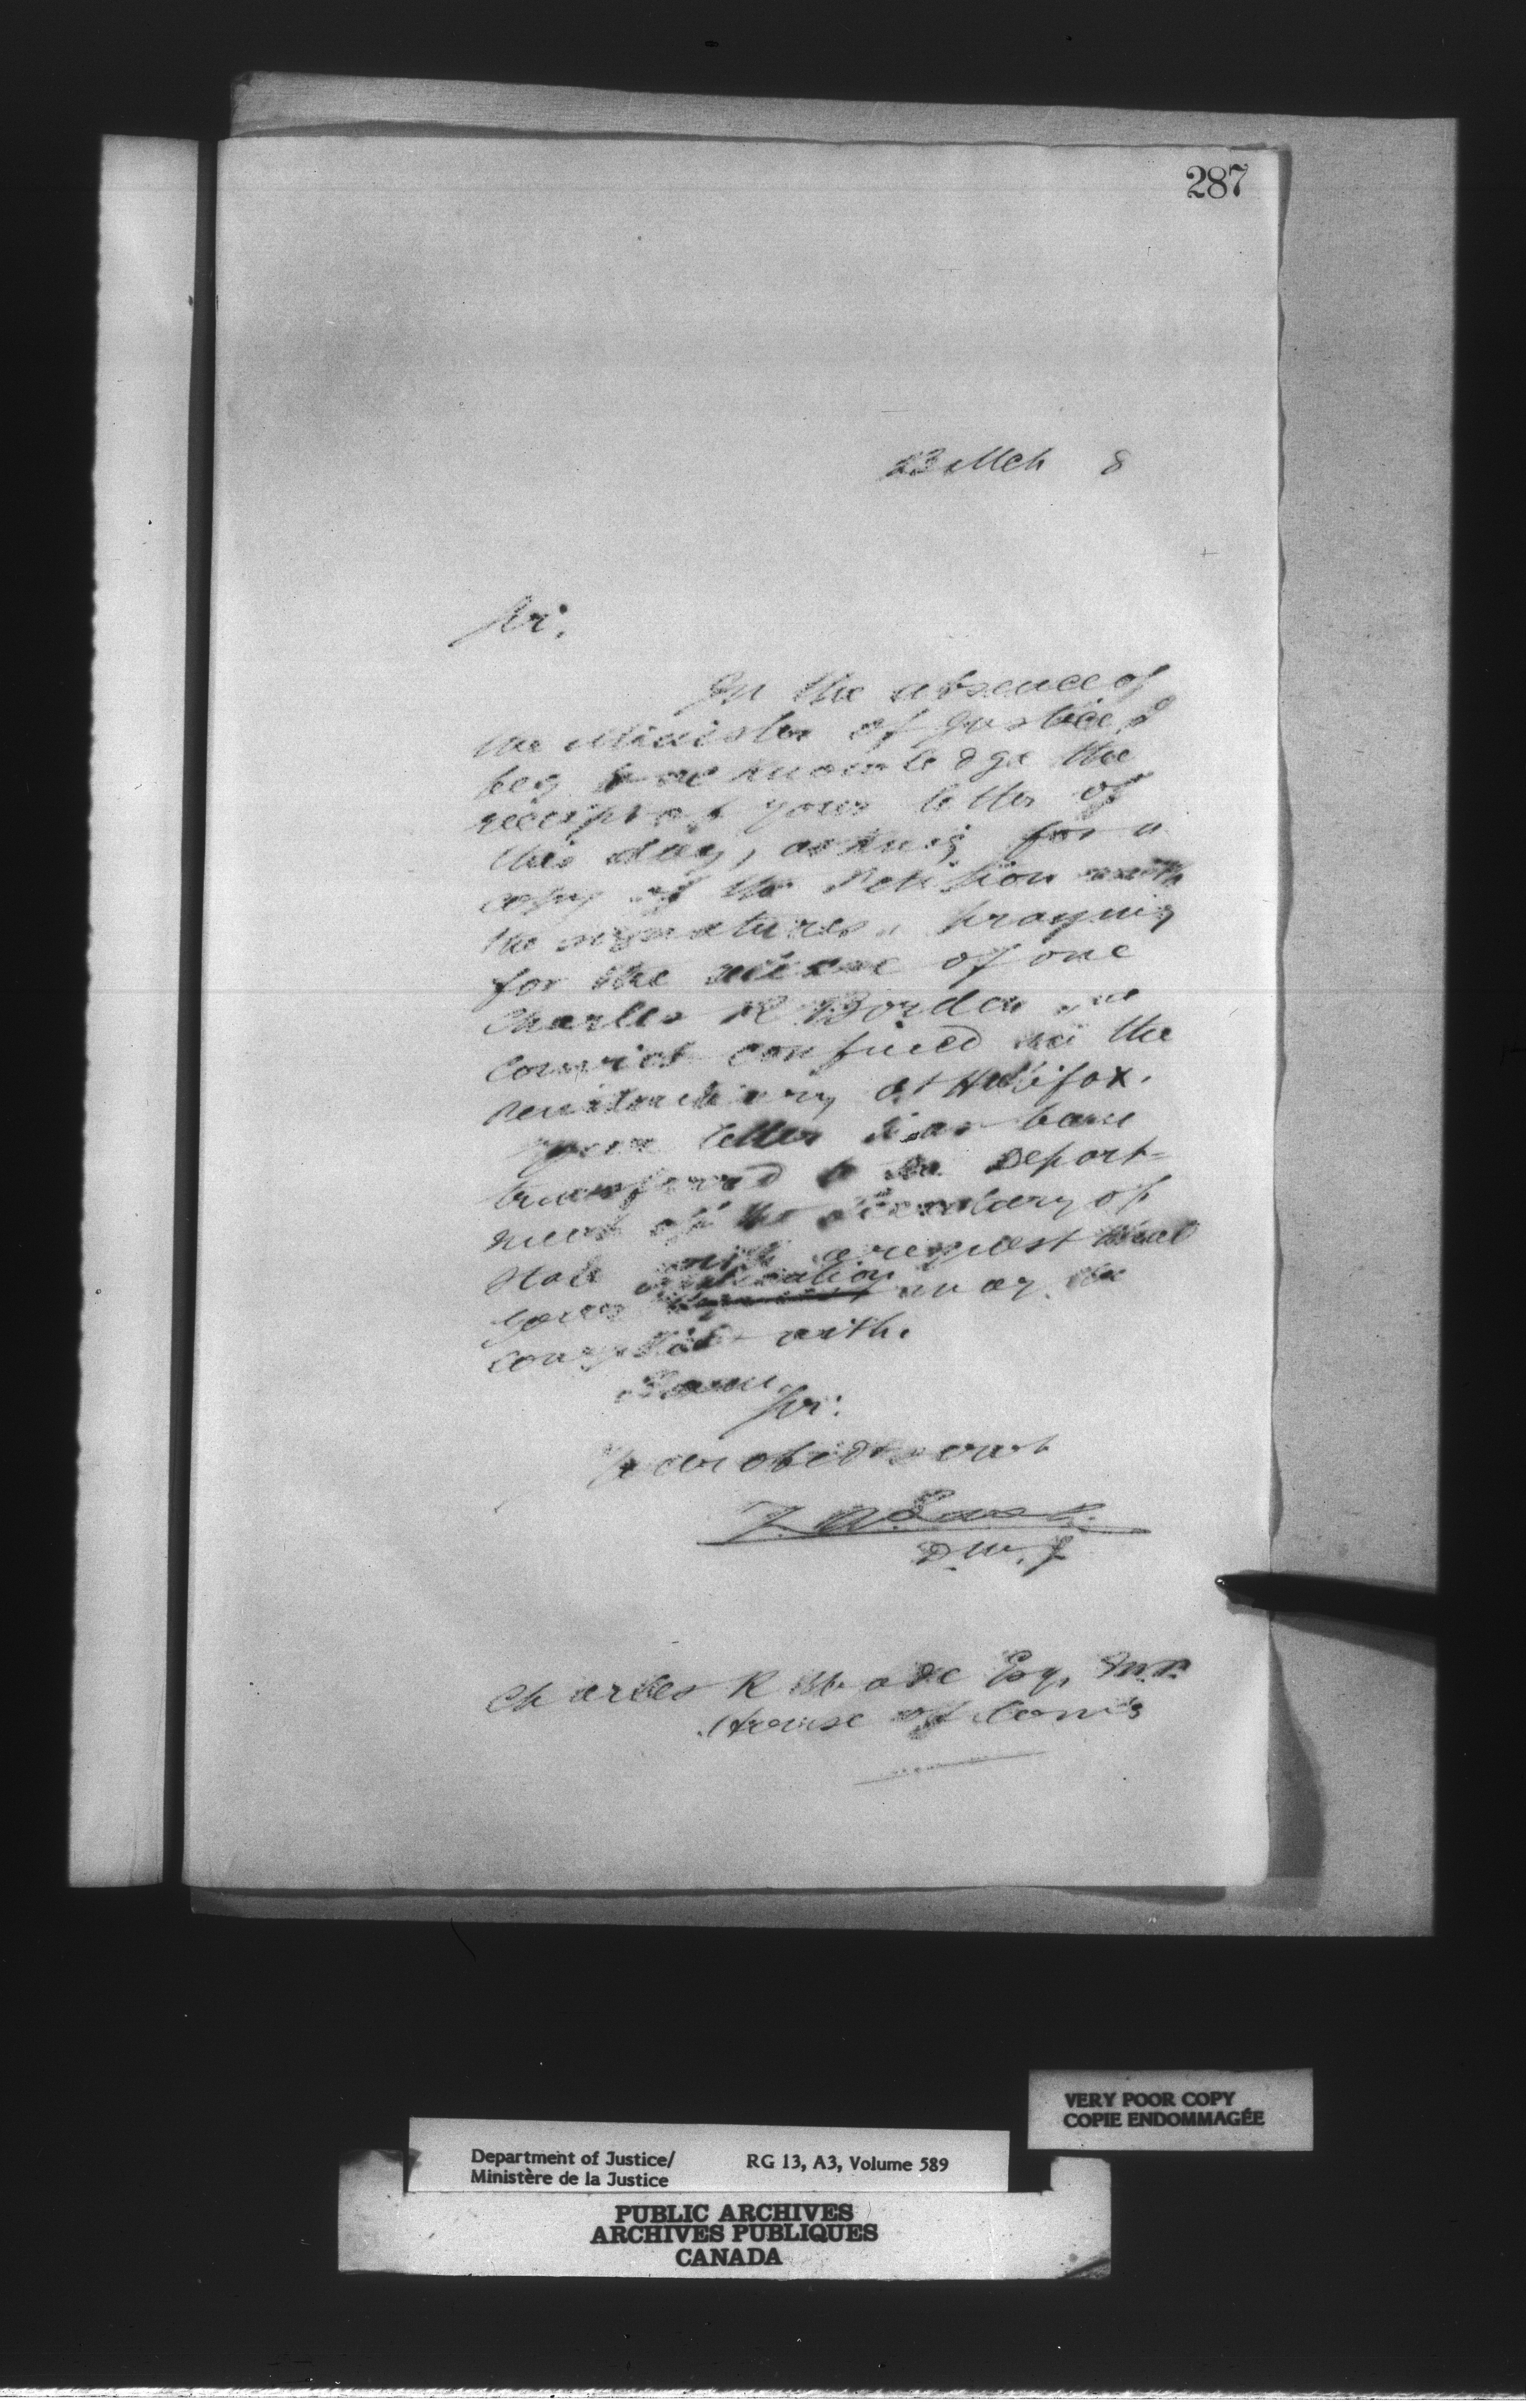 287
23 Mch 8
Sir,
In the absence of
the Minister of Justice I
beg to acknowledge the
receipt of your letter of
this day, asking for a
copy of the Petition with
the signatures, praying
for the release of one
Charles R Borden, a
convict confined in the
Penitentiary at Halifax.
Your letter has been
transferred to the Depart=
ment of the Secretary of
State with a request that
your application may be
complied with.
I am
Sir.
Your obedt servt
Z. A. Lash.
D. M. J
Charles R Esq, M.P.
House of Com's
VERY POOR COPY
COPIE ENDOMMAGÉE
Department of Justice/ RG 13, A3, Volume 589
Ministère de la Justice
PUBLIC ARCHIVES
ARCHIVES PUBLIQUES
CANADA